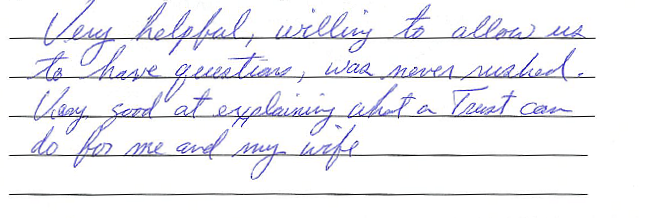 Very helpful, willing to allow us
to have questions, was never rushed.
Very good at explaining what a Trust can
do for me and my wife